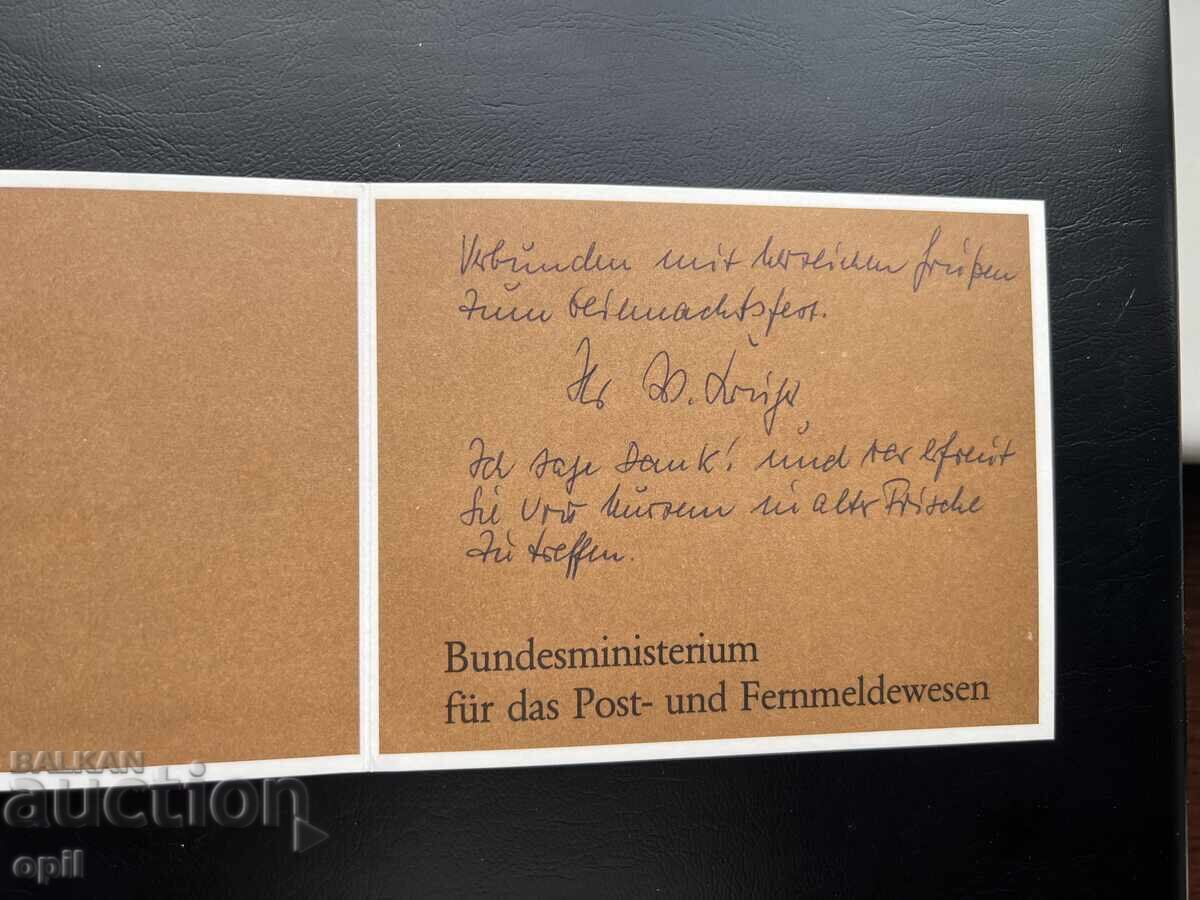 Verbunden mit herzlichen Grüßen
zum Weihnachtsfest.
Ihr W.
Ich sage Dank! und war erfreut
Sie vor kurzem in alter Frische
zu treffen.
Bundesministerium
für das Post- und Fernmeldewesen
BALKAN
auction
opil